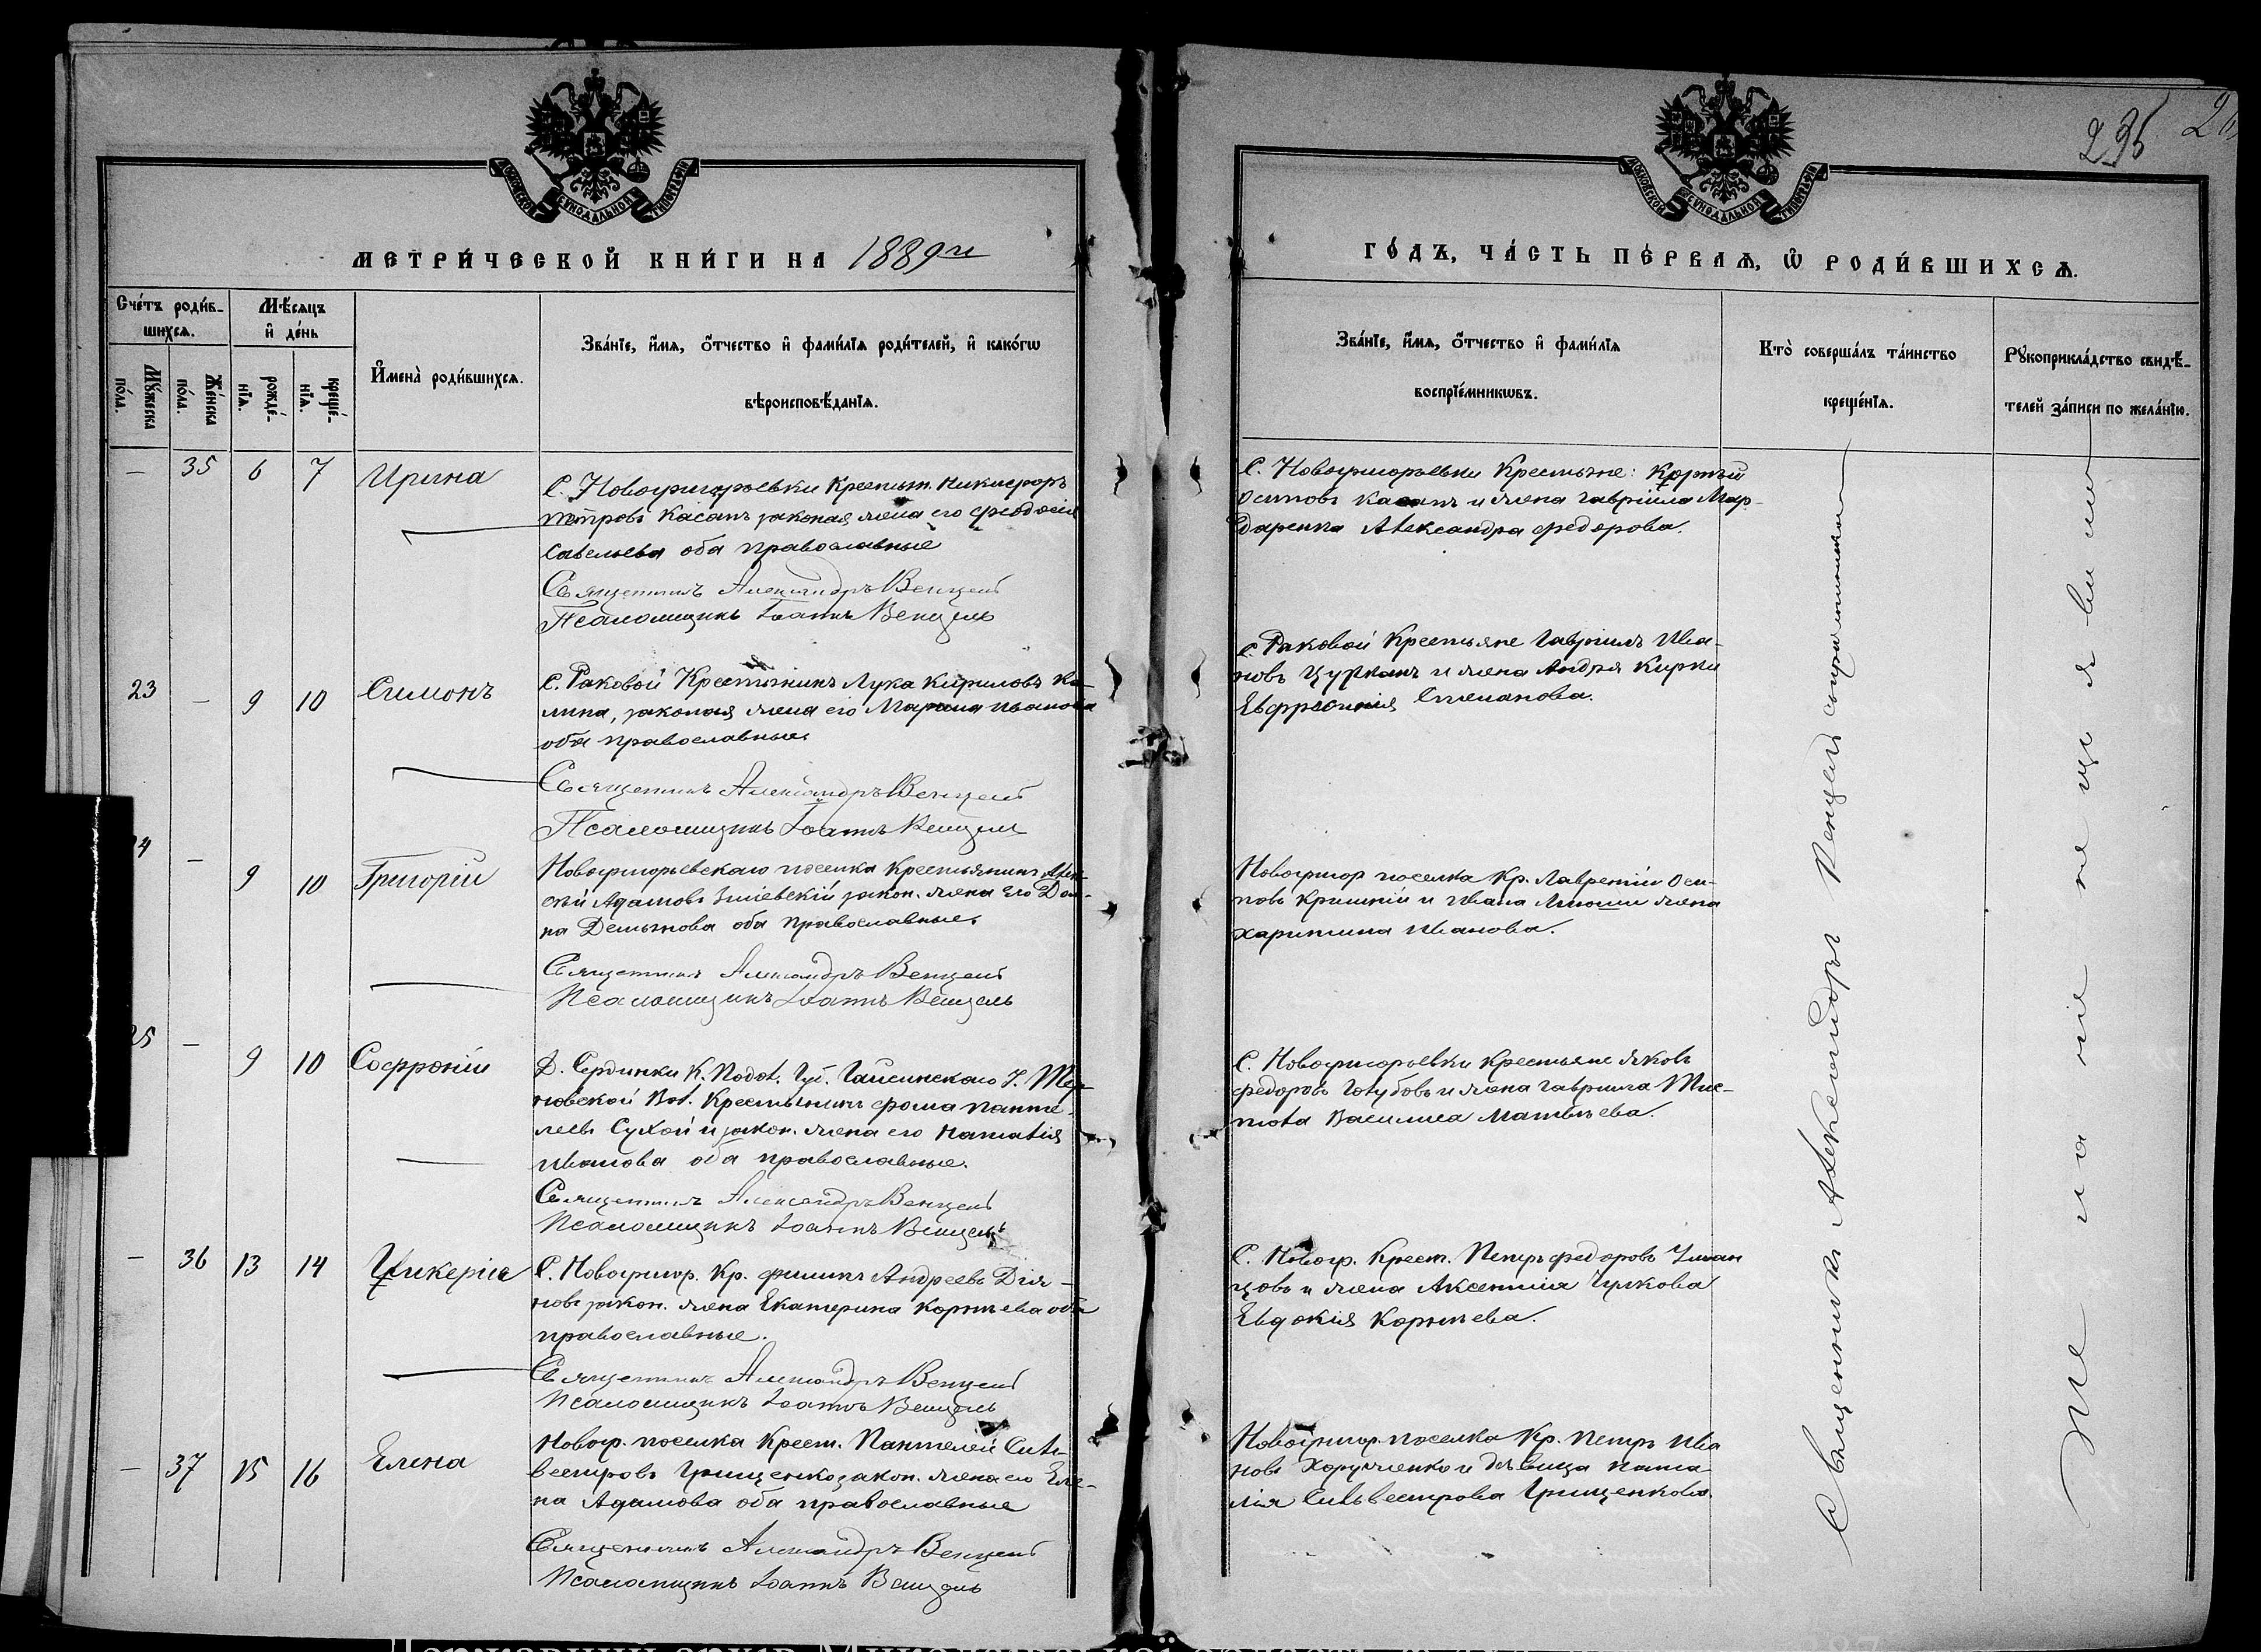 295
МЕТРИ́ЧЕСКОЙ КНИ́ГИ НА 1889 г.
ГО́ДЪ, ЧА́СТЬ ПЕ́РВАѦ, Ѡ РОДИ́ВШИХСѦ.
Сче́тъ роди́в-
шихсѧ.
Мѣ́сѧцъ
и҆ де́нь
Мꙋ́жеска
по́ла.
Же́нска
по́ла.
рожде́-
нїѧ.
креще́-
нїѧ.
И҆мена̀ роди́вшихсѧ.
Зва́нїе, и҆́мѧ, ѻ҆́тчество и҆ фами́лїѧ роди́телей, и҆ како́гѡ
вѣроисповѣ́данїѧ.
Зва́нїе, и҆́мѧ, ѻ҆́тчество и҆ фами́лїѧ
воспрїе́мникѡвъ.
Кто̀ соверша́лъ та́инство
креще́нїѧ.
Рꙋкоприкла́дство свидѣ́-
телей за́писи по жела́нїю.
— 35 6 7 Ирина
С. Новогригорьевки Крестьян. Никифоръ
Петровъ Касапъ законая жена его Феодосія
Савельева оба православные
Священникъ Александръ Венцель
Псаломщикъ Іоаннъ Венцель
С. Новогригорьевки Крестьяне: Корнѣй
Осиповъ Касапъ и жена Гавріила Мар-
даренка Александра Федорова.
23 — 9 10 Симонъ
С. Раковой Крестьянинъ Лука Кириловъ Ка-
лина, законая жена его Марина Иванова
оба православные
Священникъ Александръ Венцель
Псаломщикъ Іоаннъ Венцель
С. Раковой Крестьяне Гавриилъ Ива-
новъ Цурканъ и жена Андрея Кирки
Евфросинія Степанова.
24 — 9 10 Григорій
Новогригорьевскаго поселка Крестьянинъ Алек-
сѣй Адамовъ Зміевскій закон. жена его Дом-
на Демьянова оба православные.
Священникъ Александръ Венцель
Псаломщикъ Іоаннъ Венцель
Новогригор поселка Кр. Лаврентій Оси-
повъ Кришній и Ивана жена
Харитина Иванова.
25 — 9 10 Софроній
Д. Сердинки К. Подол. Губ. Гайсинскаго У. Тер-
новской Вол. Крестьянинъ Фома Панте-
леевъ Сухой и закон. жена его Наталія
Иванова оба православные.
Священникъ Александръ Венцель
Псаломщикъ Іоаннъ Венцель
С. Новогригорьевки Крестьяне Яковъ
Федоровъ Голубовъ и жена Гавриила
Василиса Матвѣева.
— 36 13 14 Гликерія
С. Новогригор. Кр. Филипъ Андреевъ Дія-
новъ закон. жена Екатерина Корнѣева оба
православные.
Священникъ Александръ Венцель
Псаломщикъ Іоаннъ Венцель
С. Новогр. Крест. Петръ Федоровъ
цовъ и жена Аксентія Чулкова
Евдокія Корнѣева.
— 37 15 16 Елена
Новогр. поселка Крест. Пантелей Силь-
вестровъ Грищенко закон. жена его Еле-
на Адамова оба православные
Священникъ Александръ Венцель
Псаломщикъ Іоаннъ Венцель
Новогригор. поселка Кр. Петръ Ива
новъ Харученко и дѣвица Ната-
лія Сильвестрова Грищенкова.
Священникъ Александръ Венцель